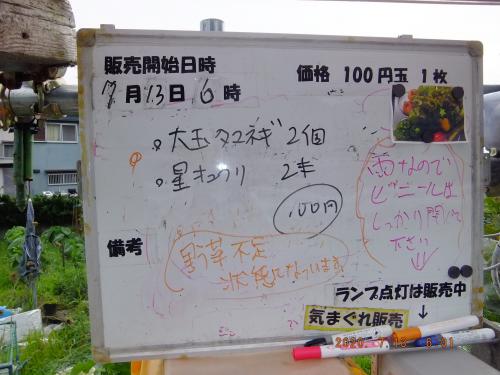 販売開始日時
価格 100円玉 1枚
7月13日 6時
大玉タマネギ 2個
星キュウリ 2本
100円
雨なので
ビニールは
しっかり閉めて
下さい
備考
不定
状態になっています
ランプ点灯は販売中
気まぐれ販売